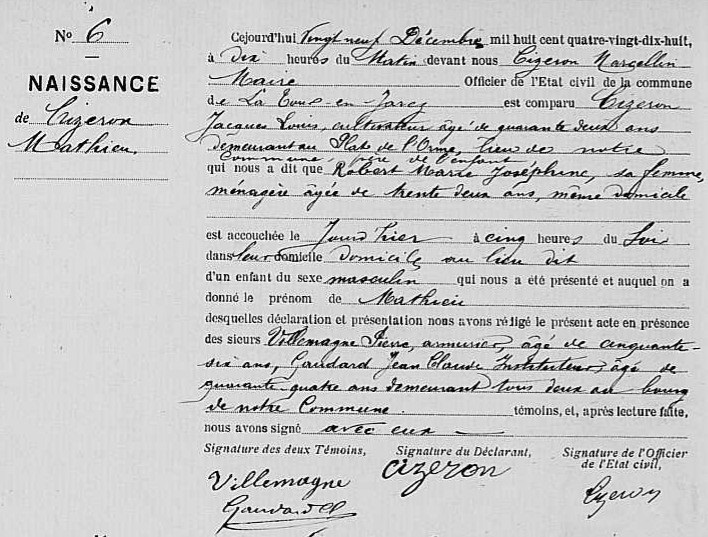 N° 6
NAISSANCE
de Cizeron
Mathieu.
Cejourd'hui Vingt neuf Décembre mil huit cent quatre-vingt-dix-huit,
à dix heures du Matin devant nous Cizeron Marcellin
Maire Officier de l'Etat civil de la commune
de La Tour-en-Jarez est comparu Cizeron
Jacques Louis, cultivateur âgé de quarante deux ans
demeurant au Plat de l'Orme, lieu de notre
Commune, père de l'enfant
qui nous a dit que Robert Marie Joséphine, sa femme,
ménagère âgée de trente deux ans, même domicile
est accouchée le Jour d'hier à cinq heures du Soir
dans leur domicile domicile au lieu dit
d'un enfant du sexe masculin qui nous a été présenté et auquel on a
donné le prénom de Mathieu
desquelles déclaration et présentation nous avons rédigé le présent acte en présence
des sieurs Villemagne Pierre, armurier, âgé de cinquante-
six ans, Gaudard Jean Claude Instituteur, âgé de
quarante-quatre ans demeurant tous deux au bourg
de notre Commune. témoins, et, après lecture faite,
nous avons signé avec eux
Signature des deux Témoins, Signature du Déclarant, Signature de l'Officier
de l'Etat civil,
Villemagne Cizeron Cizeron
Gaudard